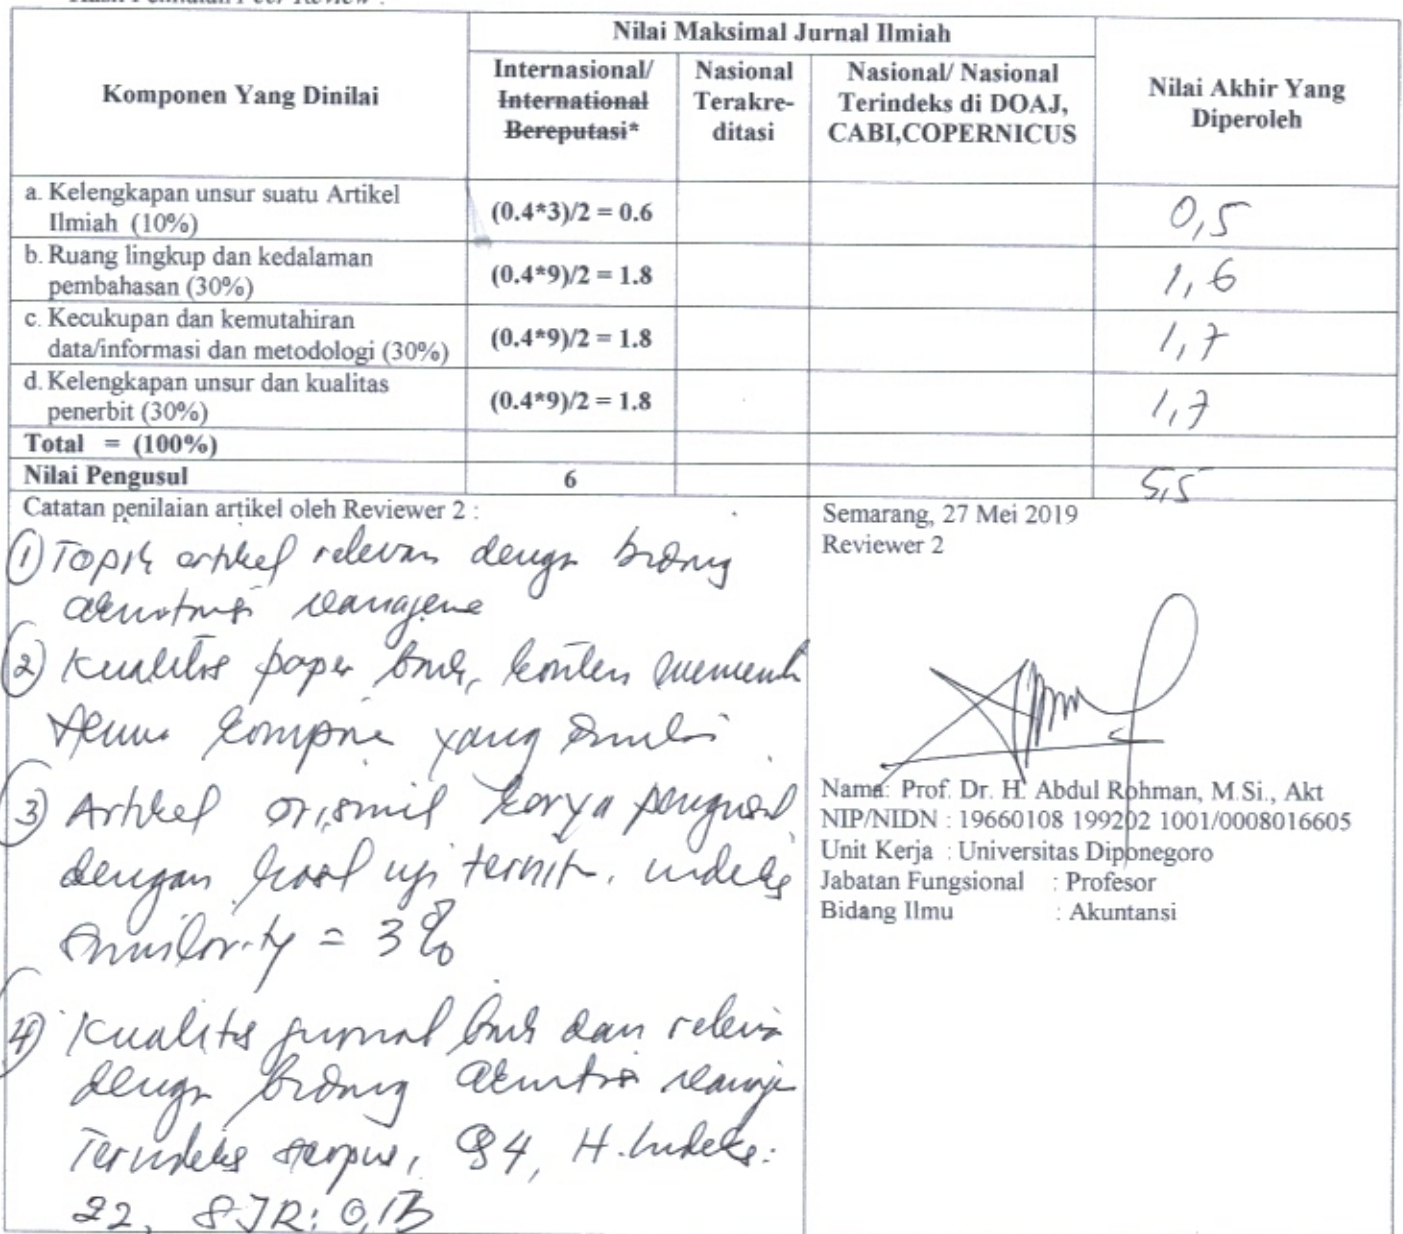 Hasil Penilaian Peer Review :
Komponen Yang Dinilai
Nilai Maksimal Jurnal Ilmiah
Internasional/
International
Bereputasi*
Nasional
Terakre-
ditasi
Nasional/ Nasional
Terindeks di DOAJ,
CABI,COPERNICUS
Nilai Akhir Yang
Diperoleh
a. Kelengkapan unsur suatu Artikel
Ilmiah (10%)
(0.4*3)/2 = 0.6
0,5
b. Ruang lingkup dan kedalaman
pembahasan (30%)
(0.4*9)/2 = 1.8
1,6
c. Kecukupan dan kemutahiran
data/informasi dan metodologi (30%)
(0.4*9)/2 = 1.8
1,7
d. Kelengkapan unsur dan kualitas
penerbit (30%)
(0.4*9)/2 = 1.8
1,7
Total = (100%)
Nilai Pengusul
6
5,5
Catatan penilaian artikel oleh Reviewer 2 :
① Topik artikel relevan dengan bidang
akuntansi manajemen
② Kualitas paper baik, konten memenuhi
semua komponen yang dinilai
③ Artikel orisinil karya pengusul
dengan hasil uji turnitin, indeks
similarity = 3%
④ Kualitas jurnal baik dan relevan
dengan bidang akuntansi manajemen
Terindeks scopus, Q4, H.Indeks:
22, SJR: 0,13
Semarang, 27 Mei 2019
Reviewer 2
Nama: Prof. Dr. H. Abdul Rohman, M.Si., Akt
NIP/NIDN : 19660108 199202 1001/0008016605
Unit Kerja : Universitas Diponegoro
Jabatan Fungsional : Profesor
Bidang Ilmu : Akuntansi